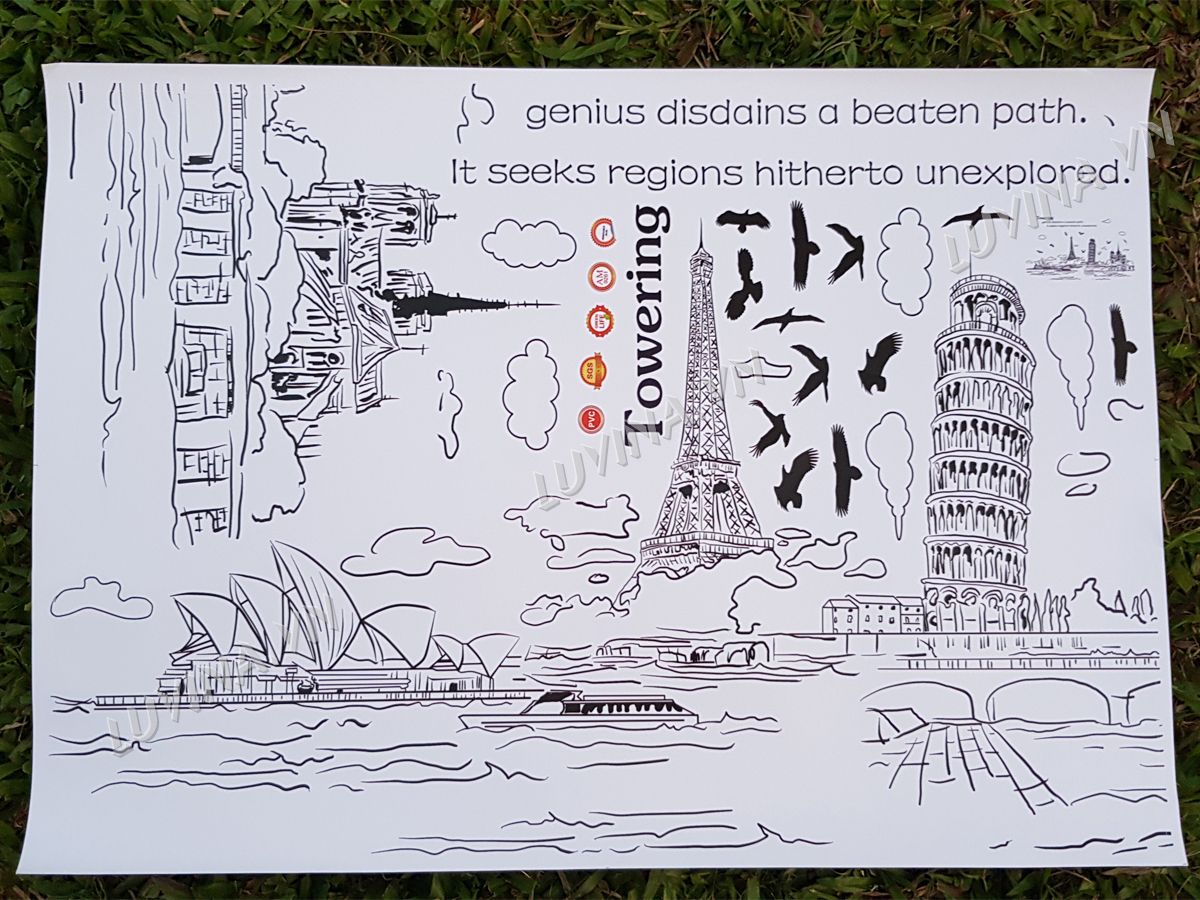 genius disdains a beaten path.
It seeks regions hitherto unexplored.
Towering
SGS
PVC
LUVINA.VN
LUVINA.VN
LUVINA.VN
LUVINA.VN